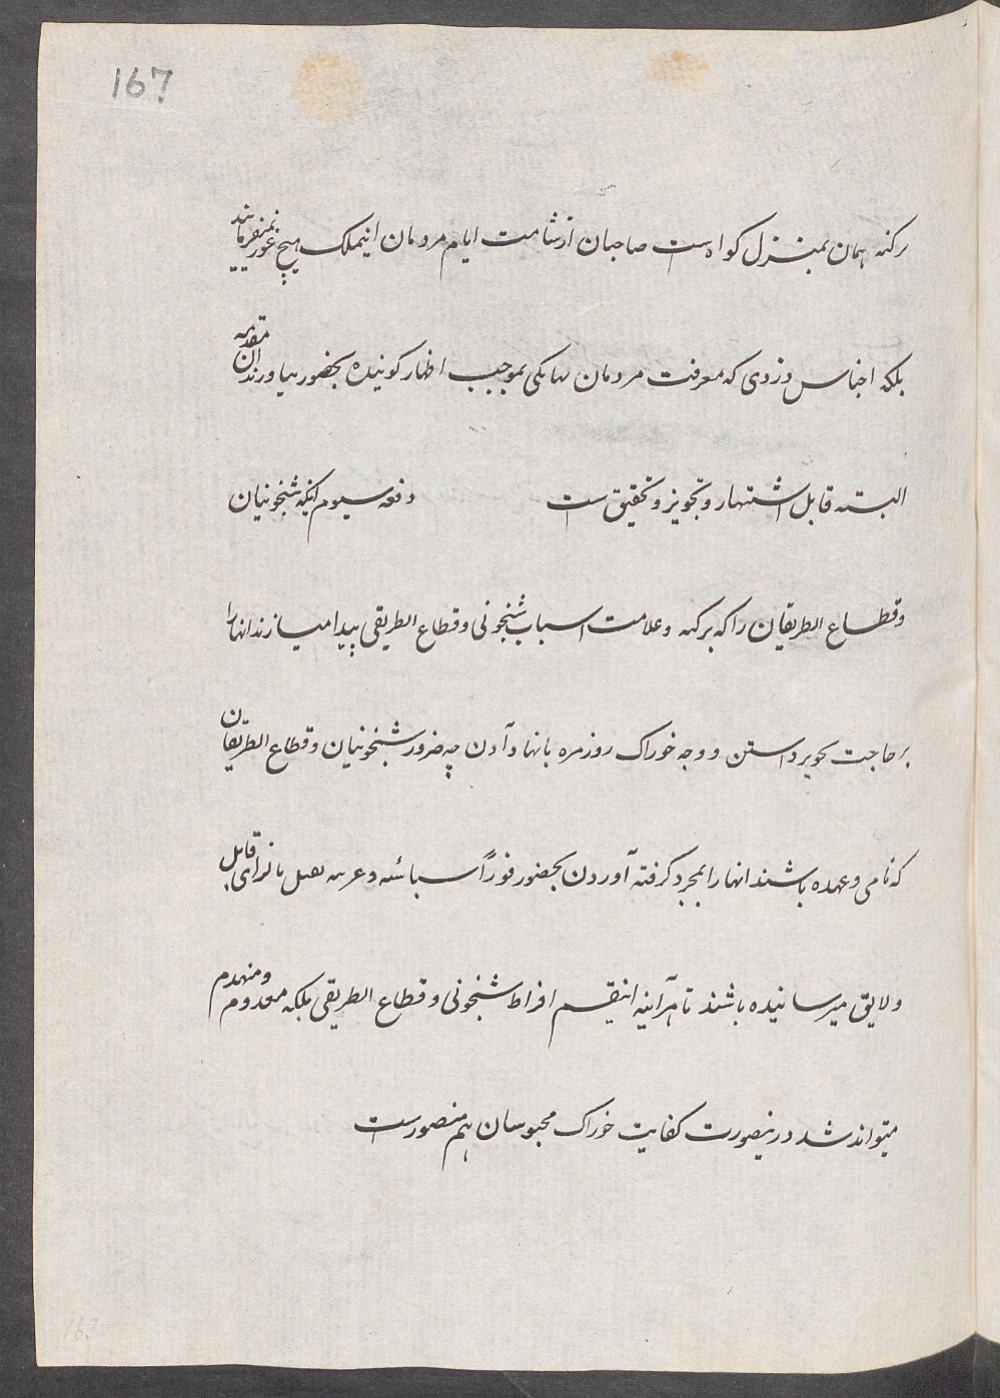 167
رکنه همان بمنزل کواه است صاحبان از شامت ایام مردمان اینملک هیچ غور نمیفرمایند
بلکه اجناس دزدی که معرفت مردمان بموجب اظهار کوئینده بحضور میاورند ان مقدمه
البته قابل اشتهار و تجویز و تحقیق ست دفعه سیوم انیکه شبخونیان
وقطاع الطریقان را که برکه وعلامت اسباب شبخونی وقطاع الطریقی پیدا میسازند انها را
بر حاجت تجویز داشتن و وجه خوراک روزمره بانها دادن چه ضرور شبخونیان وقطاع الطریقان
که نامی وعمده باشند انها را بمجرد کرفته آوردن بحضور فوراً قابل
ولایق میرسانیده باشند تا هرآئینه اینقسم افراط شبخونی وقطاع الطریقی بلکه معدوم ومنهدم
میتواند شد درینصورت کفایت خوراک محبوسان هم متصورست